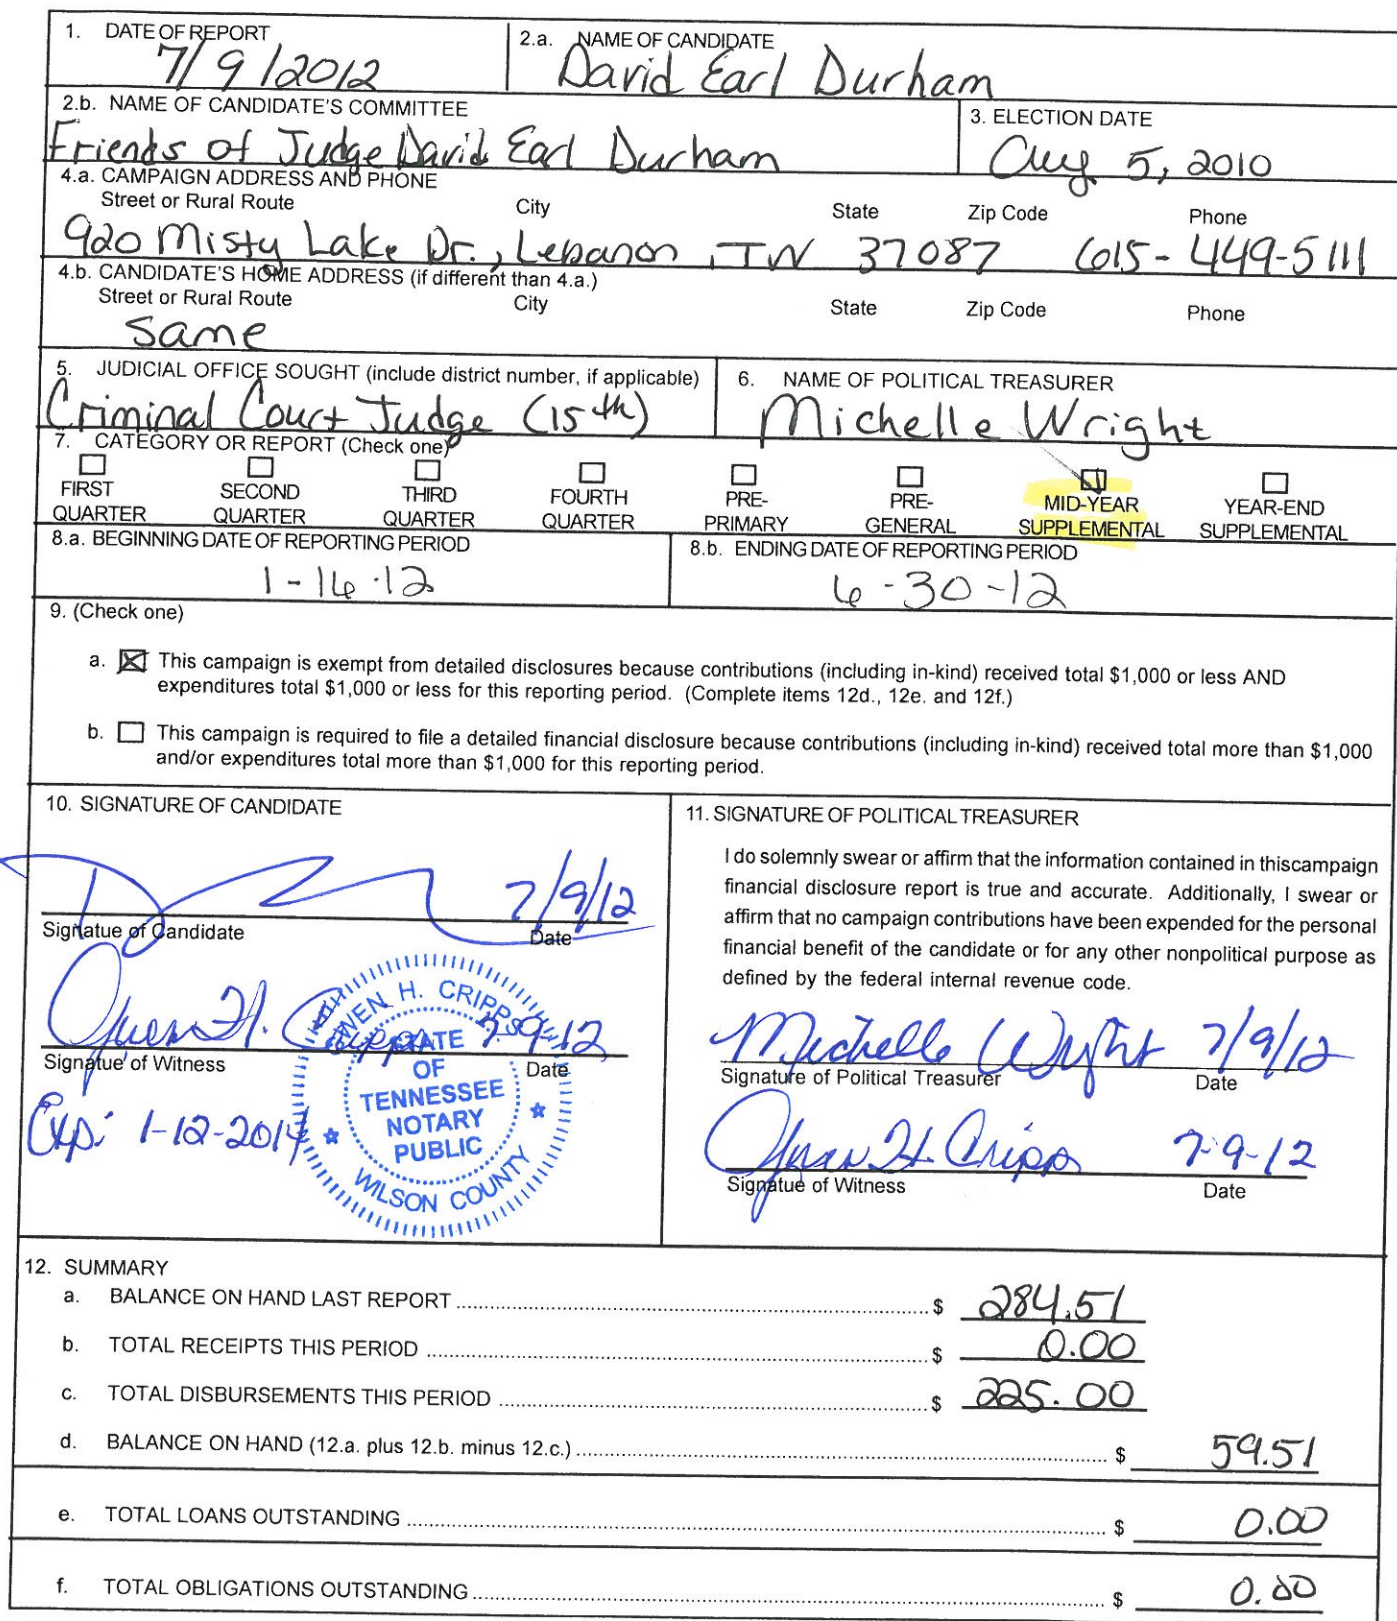 1. DATE OF REPORT
7/9/2012
2.a. NAME OF CANDIDATE
David Earl Durham
2.b. NAME OF CANDIDATE'S COMMITTEE
Friends of Judge David Earl Durham
3. ELECTION DATE
Aug 5, 2010
4.a. CAMPAIGN ADDRESS AND PHONE
Street or Rural Route City State Zip Code Phone
920 Misty Lake Dr., Lebanon, TN 37087 615-449-5111
4.b. CANDIDATE'S HOME ADDRESS (if different than 4.a.)
Street or Rural Route City State Zip Code Phone
same
5. JUDICIAL OFFICE SOUGHT (include district number, if applicable)
Criminal Court Judge (15th)
6. NAME OF POLITICAL TREASURER
Michelle Wright
7. CATEGORY OR REPORT (Check one)
FIRST QUARTER
SECOND QUARTER
THIRD QUARTER
FOURTH QUARTER
PRE-PRIMARY
PRE-GENERAL
MID-YEAR SUPPLEMENTAL
YEAR-END SUPPLEMENTAL
8.a. BEGINNING DATE OF REPORTING PERIOD
1-16-12
8.b. ENDING DATE OF REPORTING PERIOD
6-30-12
9. (Check one)
a. This campaign is exempt from detailed disclosures because contributions (including in-kind) received total $1,000 or less AND
expenditures total $1,000 or less for this reporting period. (Complete items 12d., 12e. and 12f.)
b. This campaign is required to file a detailed financial disclosure because contributions (including in-kind) received total more than $1,000
and/or expenditures total more than $1,000 for this reporting period.
10. SIGNATURE OF CANDIDATE
7/9/12
Signatue of Candidate Date
Gwen H. Cripps 7-9-12
Signatue of Witness Date
Exp: 1-12-2014
GWEN H. CRIPPS
STATE
OF
TENNESSEE
NOTARY
PUBLIC
WILSON COUNTY
11. SIGNATURE OF POLITICAL TREASURER
I do solemnly swear or affirm that the information contained in thiscampaign
financial disclosure report is true and accurate. Additionally, I swear or
affirm that no campaign contributions have been expended for the personal
financial benefit of the candidate or for any other nonpolitical purpose as
defined by the federal internal revenue code.
Michelle Wright 7/9/12
Signature of Political Treasurer Date
Gwen H. Cripps 7-9-12
Signatue of Witness Date
12. SUMMARY
a. BALANCE ON HAND LAST REPORT $ 284.51
b. TOTAL RECEIPTS THIS PERIOD $ 0.00
c. TOTAL DISBURSEMENTS THIS PERIOD $ 225.00
d. BALANCE ON HAND (12.a. plus 12.b. minus 12.c.) $ 59.51
e. TOTAL LOANS OUTSTANDING $ 0.00
f. TOTAL OBLIGATIONS OUTSTANDING $ 0.00